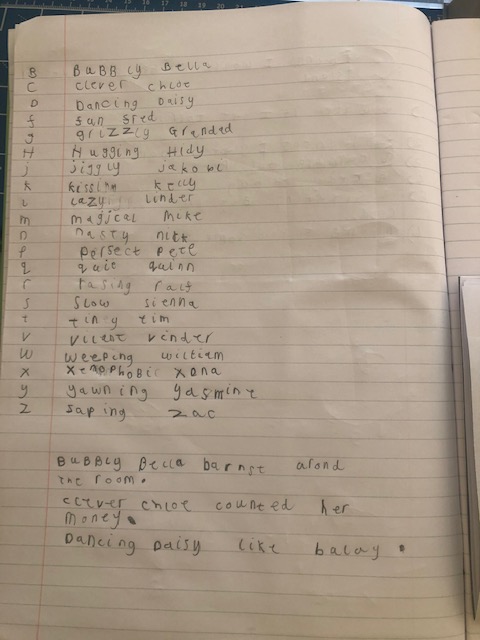 B BUBBly Bella
C clever chloe
D Dancing Daisy
f fun fred
g grizzly Grandad
H Hugging Hldy
j jiggly jakobi
k kissinn kelly
L Lazy Linder
m magical mike
n nasty nick
p perfect pete
q quit quinn
r rasing ralf
s slow sienna
t tiny tim
V Vinder
W weeping william
x xenophobic xona
y yawning yasmine
Z zac
BUBBly Bella barnst arond
the room.
clever chloe counted her
money.
Dancing Daisy like balay.